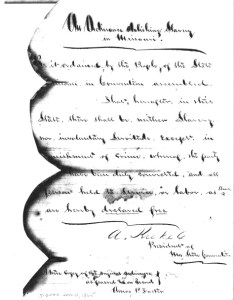 An Ordinance Abolishing Slavery
in Missouri.
Be it ordained, by the People, of the State
in Convention assembled.
That, hereafter, in this
State, there shall be, neither Slavery
nor, involuntary Servitude, except, in
punishment of Crime, whereof, the party
have been duly convicted, and all
persons held to service, or labor, as
are hereby declared free
A. Krekel
President of